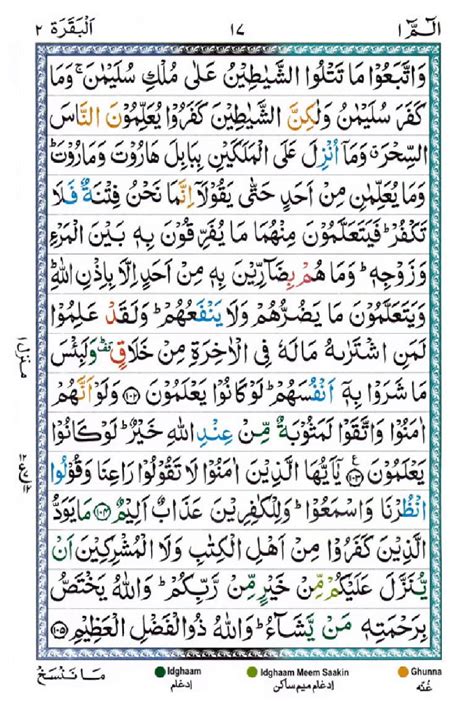 الٓمّٓ ١ ١٧ الْبَقَرَة ٢
وَاتَّبَعُوْا مَا تَتْلُوا الشَّيٰطِيْنُ عَلٰى مُلْكِ سُلَيْمٰنَ ۚ وَمَا
كَفَرَ سُلَيْمٰنُ وَلٰكِنَّ الشَّيٰطِيْنَ كَفَرُوْا يُعَلِّمُوْنَ النَّاسَ
السِّحْرَ ۗ وَمَآ اُنْزِلَ عَلَى الْمَلَكَيْنِ بِبَابِلَ هَارُوْتَ وَمَارُوْتَ ؕ
وَمَا يُعَلِّمٰنِ مِنْ اَحَدٍ حَتّٰى يَقُوْلَآ اِنَّمَا نَحْنُ فِتْنَةٌ فَلَا
تَكْفُرْ ؕ فَيَتَعَلَّمُوْنَ مِنْهُمَا مَا يُفَرِّقُوْنَ بِهٖ بَيْنَ الْمَرْءِ
وَزَوْجِهٖ ؕ وَمَا هُمْ بِضَآرِّيْنَ بِهٖ مِنْ اَحَدٍ اِلَّا بِاِذْنِ اللّٰهِ ؕ
وَيَتَعَلَّمُوْنَ مَا يَضُرُّهُمْ وَلَا يَنْفَعُهُمْ ؕ وَلَقَدْ عَلِمُوْا
لَمَنِ اشْتَرٰىهُ مَا لَهٗ فِى الْاٰخِرَةِ مِنْ خَلَاقٍ ۗ وَلَبِئْسَ
مَا شَرَوْا بِهٖٓ اَنْفُسَهُمْ ؕ لَوْ كَانُوْا يَعْلَمُوْنَ ۝۱۰۲ وَلَوْ اَنَّهُمْ
اٰمَنُوْا وَاتَّقَوْا لَمَثُوْبَةٌ مِّنْ عِنْدِ اللّٰهِ خَيْرٌ ؕ لَوْ كَانُوْا
يَعْلَمُوْنَ ۝۱۰۳ يٰٓاَيُّهَا الَّذِيْنَ اٰمَنُوْا لَا تَقُوْلُوْا رَاعِنَا وَقُوْلُوا
انْظُرْنَا وَاسْمَعُوْا ؕ وَلِلْكٰفِرِيْنَ عَذَابٌ اَلِيْمٌ ۝۱۰۴ مَا يَوَدُّ
الَّذِيْنَ كَفَرُوْا مِنْ اَهْلِ الْكِتٰبِ وَلَا الْمُشْرِكِيْنَ اَنْ
يُّنَزَّلَ عَلَيْكُمْ مِّنْ خَيْرٍ مِّنْ رَّبِّكُمْ ؕ وَاللّٰهُ يَخْتَصُّ
بِرَحْمَتِهٖ مَنْ يَّشَآءُ ؕ وَاللّٰهُ ذُو الْفَضْلِ الْعَظِيْمِ ۝۱۰۵
منزل ۱
مَا نَنْسَخْ
Idghaam
ادغام
Idghaam Meem Saakin
ادغام میم ساکن
Ghunna
غنّہ